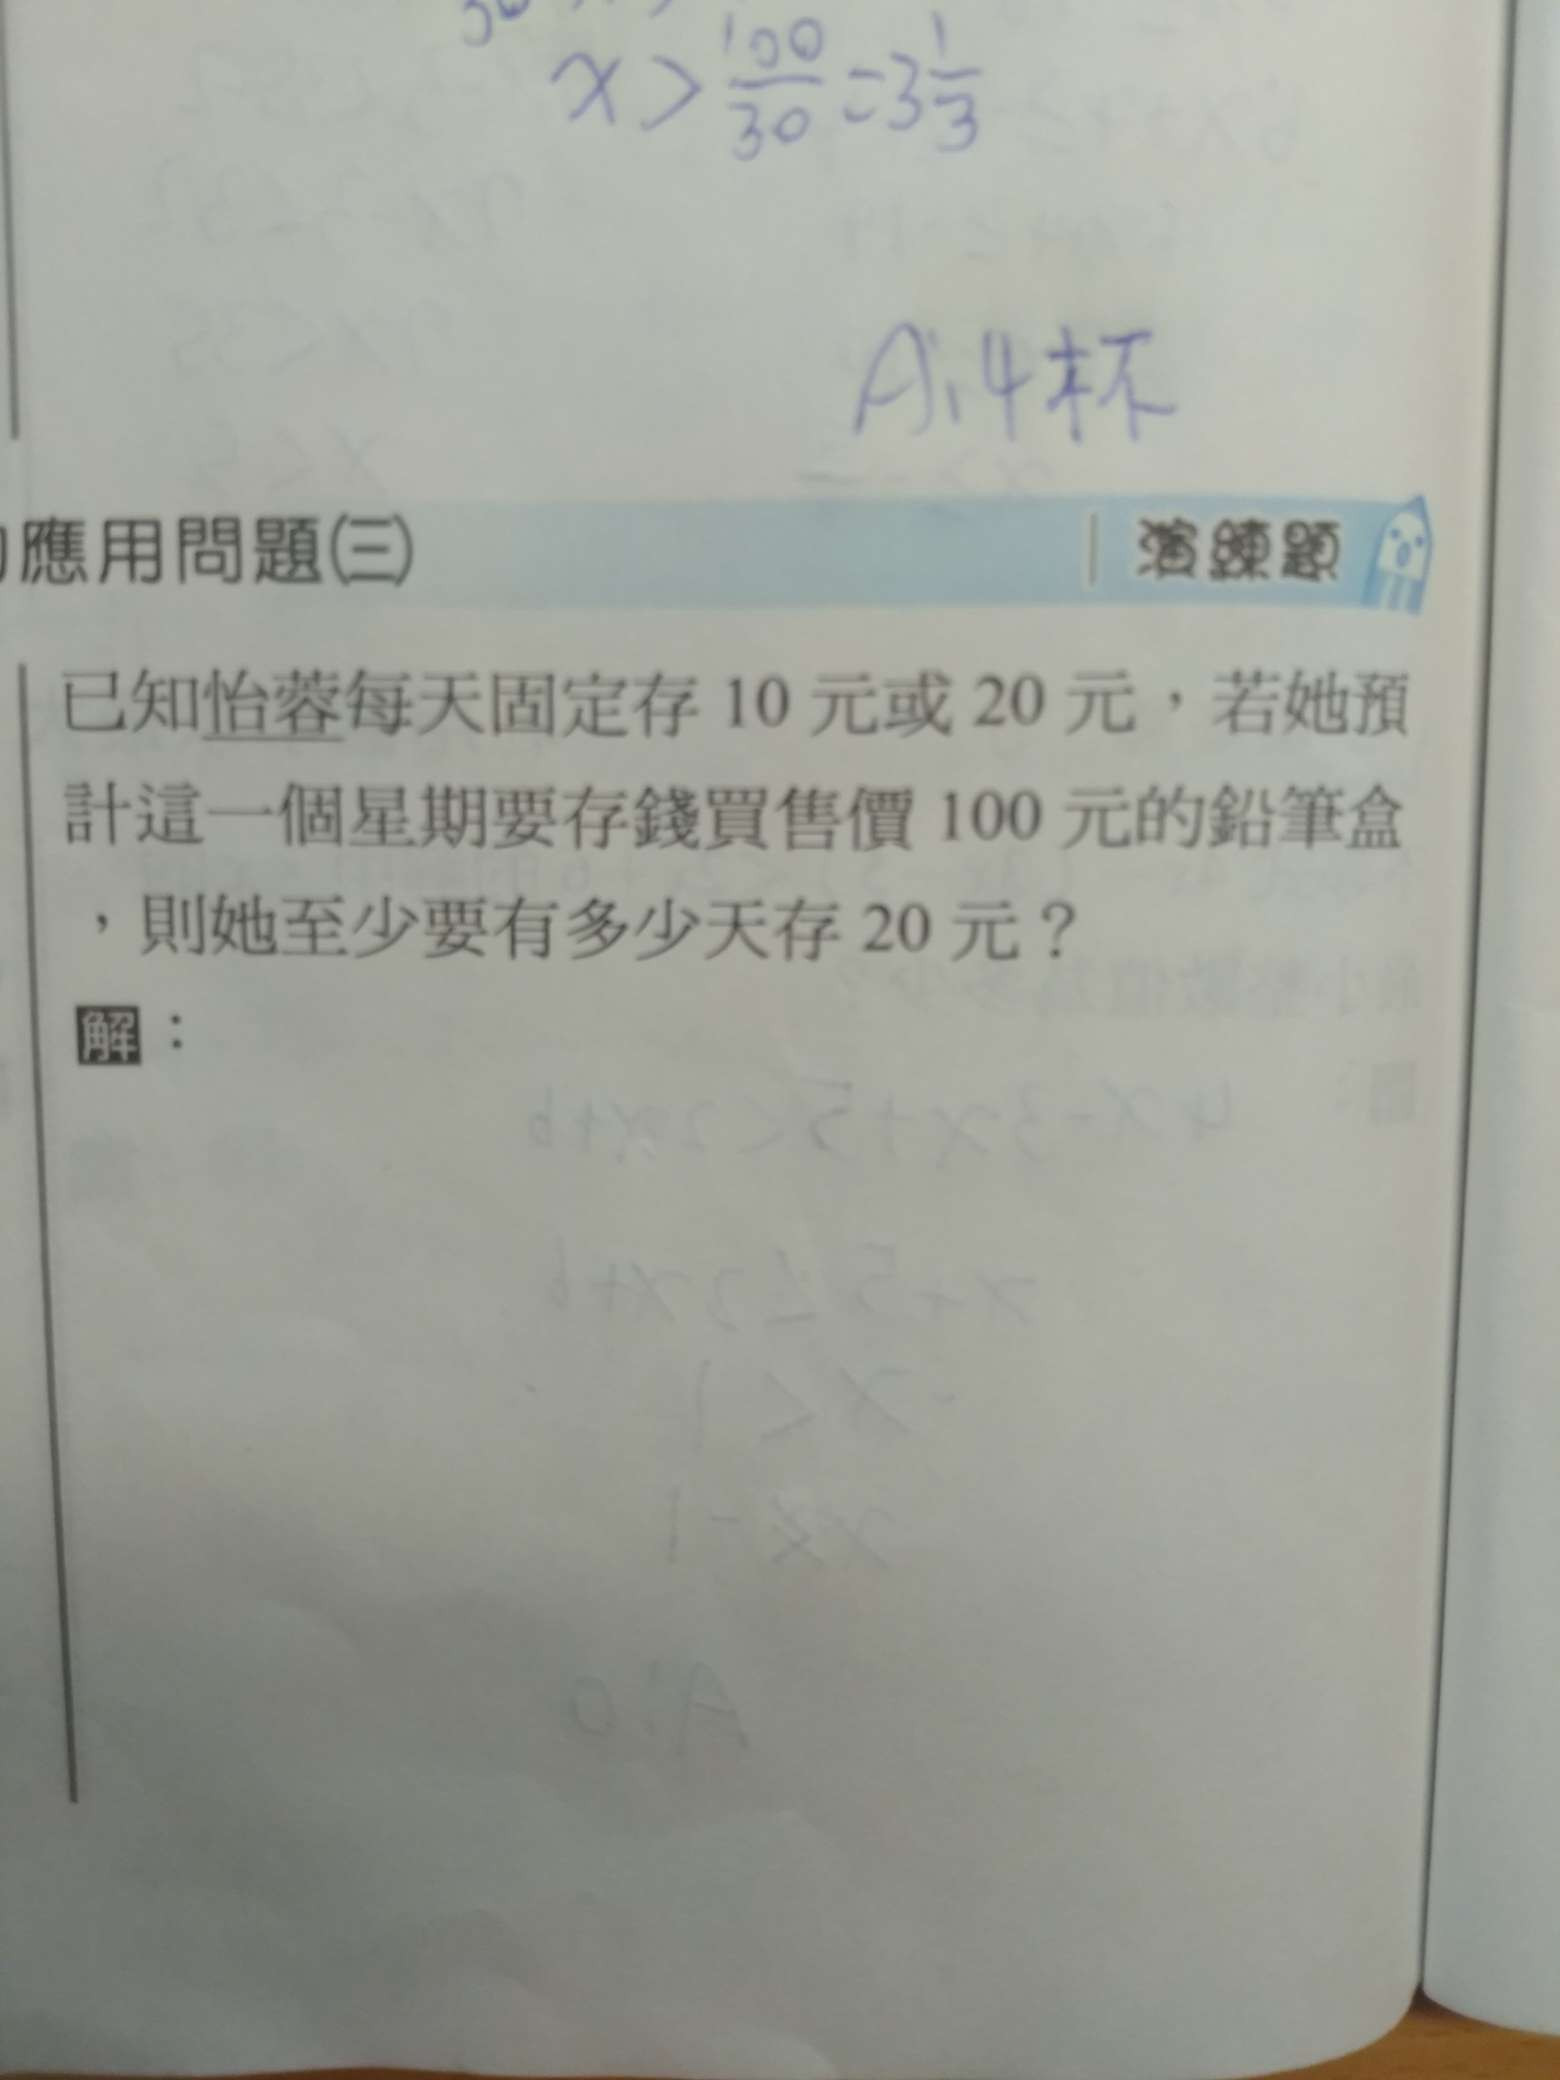 x > 100/30 = 3 1/3
A:4杯
應用問題㈢ | 演練題
已知怡蓉每天固定存 10 元或 20 元，若她預
計這一個星期要存錢買售價 100 元的鉛筆盒
，則她至少要有多少天存 20 元？
解：